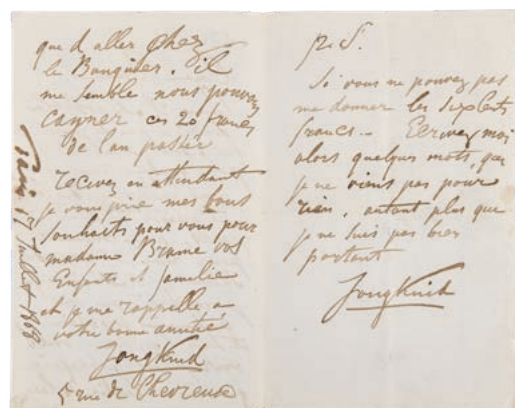 que d aller chez
le Banquier. il
me semble nous pouvez
ganner ces 20 francs
de l'an passer
recevez en attendant
je vous prie mes bons
souhaits pour vous pour
madame Brame vos
Enfants et familie
et je me rappelle a
votre bonne amitié
Jongkind
5 rue de Chevreuse
Paris 17 Juillet 1868
P. S.
Si vous ne pouvez pas
me donner les sixcents
francs — Ecrivez moi
alors quelques mots, que
je ne viens pas pour
rien, autant plus que
je ne suis pas bien
portant
Jongkind